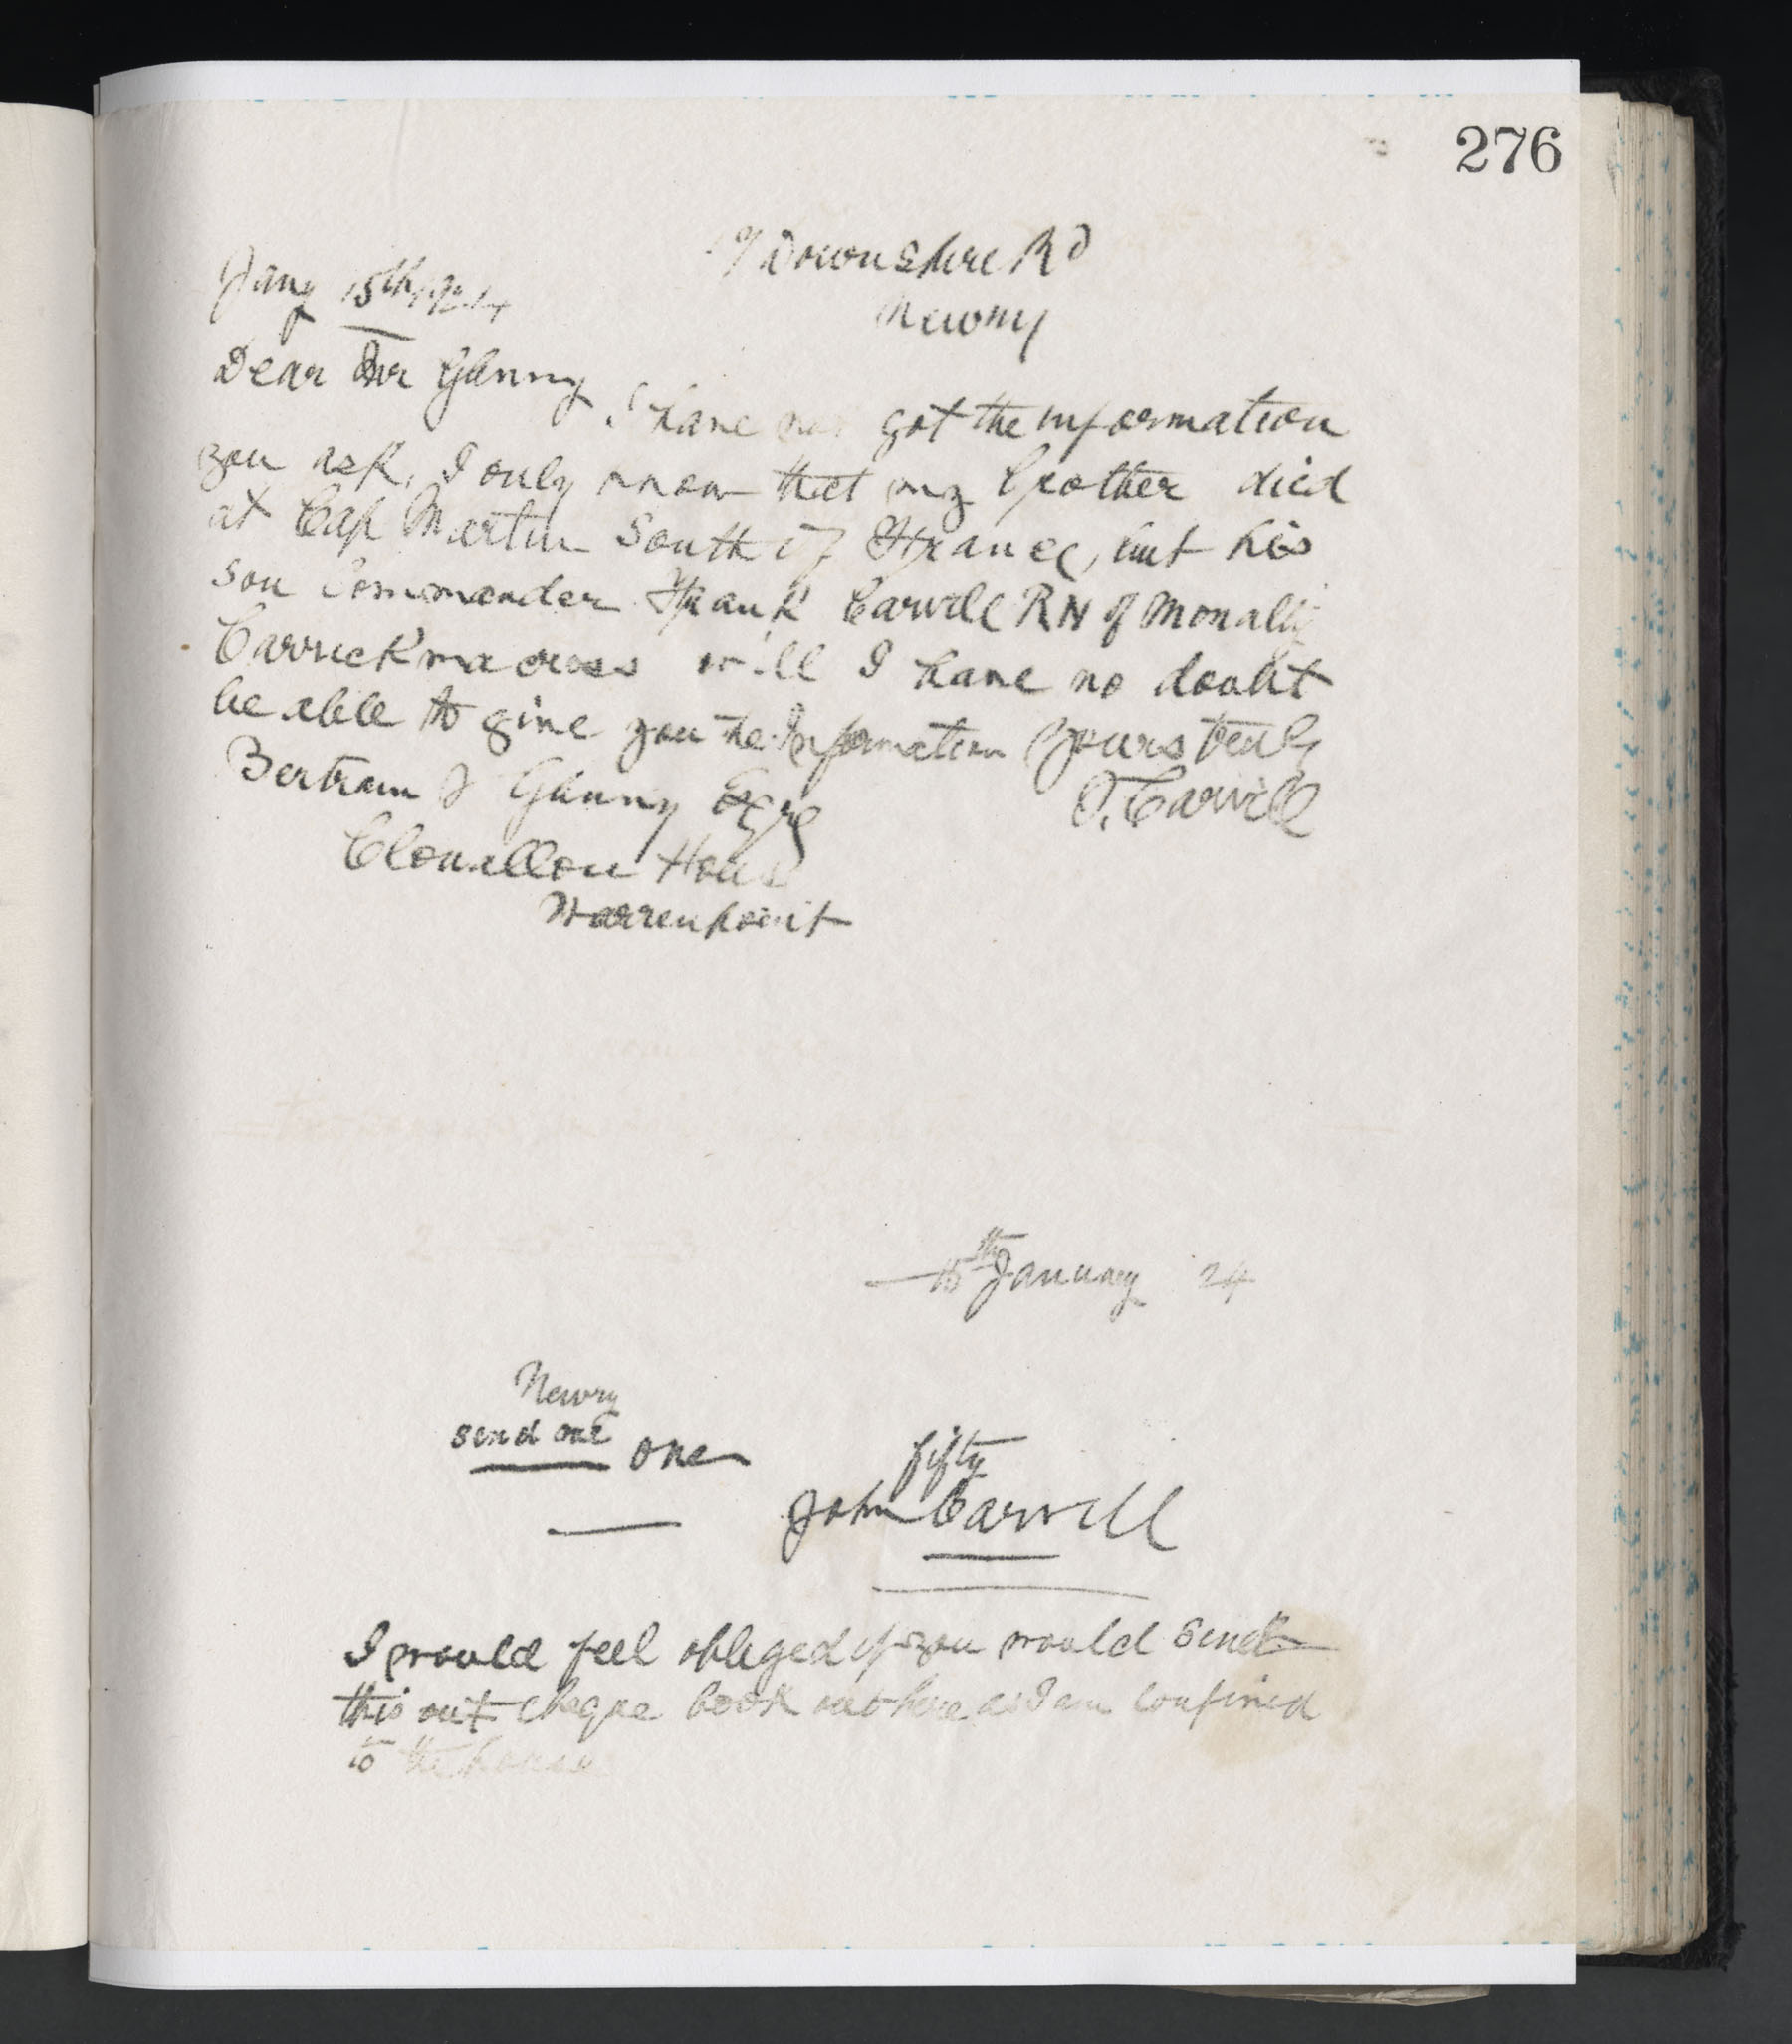 276
Downshire Rd
Newry
Jany 15th 1924
Dear Mr Glenny
I have not got the information
you ask, I only know that my brother died
at Cap Martin South of France, but his
son Commander Frank Carvill RN of
Carrickmacross will I have no doubt
be able to give you the Information Yours truly
Bertram J Glenny Esqre J. Carvill
Clonallon House
Warrenpoint
15th January 24
Newry
send me one fifty
John Carvill
I would feel obliged if you would send
this out cheque book out here as I am confined
to the house